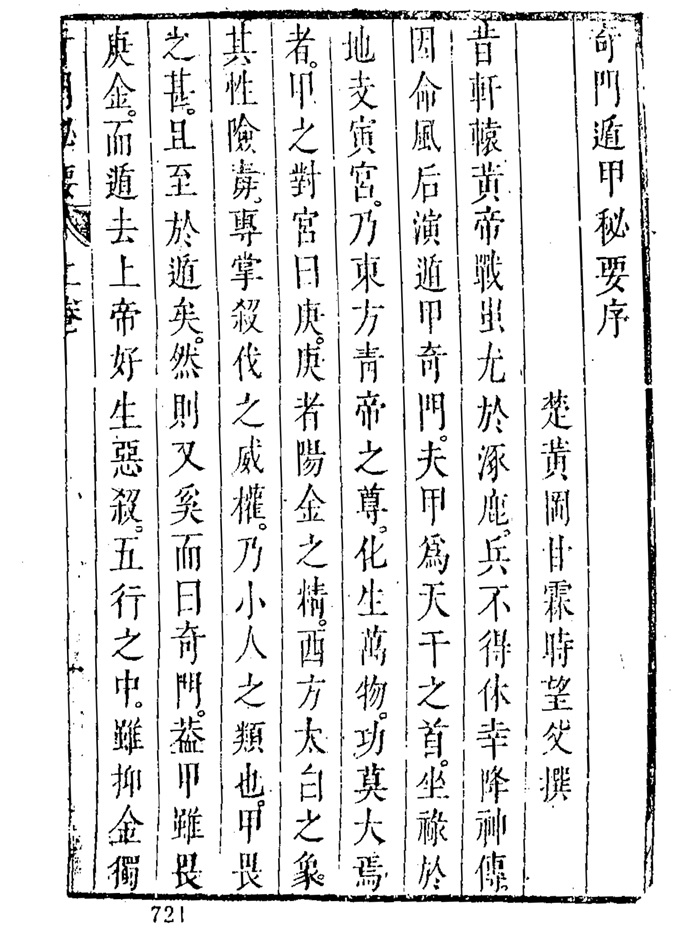 奇門遁甲秘要序
楚黃岡甘霖時望父撰
昔軒轅黃帝戰蚩尤於涿鹿。兵不得休幸降神傳。
因命風后演遁甲奇門。夫甲爲天干之首。坐祿於
地支寅宮。乃東方靑帝之尊。化生萬物。功莫大焉
者。甲之對宮曰庚。庚者陽金之精。西方太白之象。
其性險毒。專掌殺伐之威權。乃小人之類也。甲畏
之甚。且至於遁矣。然則又奚而曰奇門。葢甲雖畏
庚金。而遁去上帝好生惡殺。五行之中。雖抑金獨
奇門秘要 上卷
721